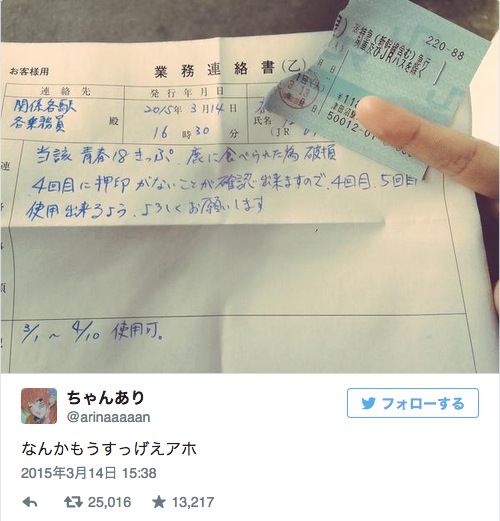 ㊕特急(新幹線含む)急行
列車及びJRバスを除く
220-88
50012-01
お客様用
業務連絡書(乙)
連絡先
発行年月日
関係各駅
各乗務員
殿
2015年3月14日
16時30分
氏名
(JR
当該 青春18きっぷ、鹿に食べられた為 破損
4回目に押印がないことが確認出来ますので、4回目、5回目
使用出来るよう、よろしくお願いします
3/1 〜 4/10 使用可。
ちゃんあり
@arinaaaaan
フォローする
なんかもうすっげえアホ
2015年3月14日 15:38
25,016
13,217